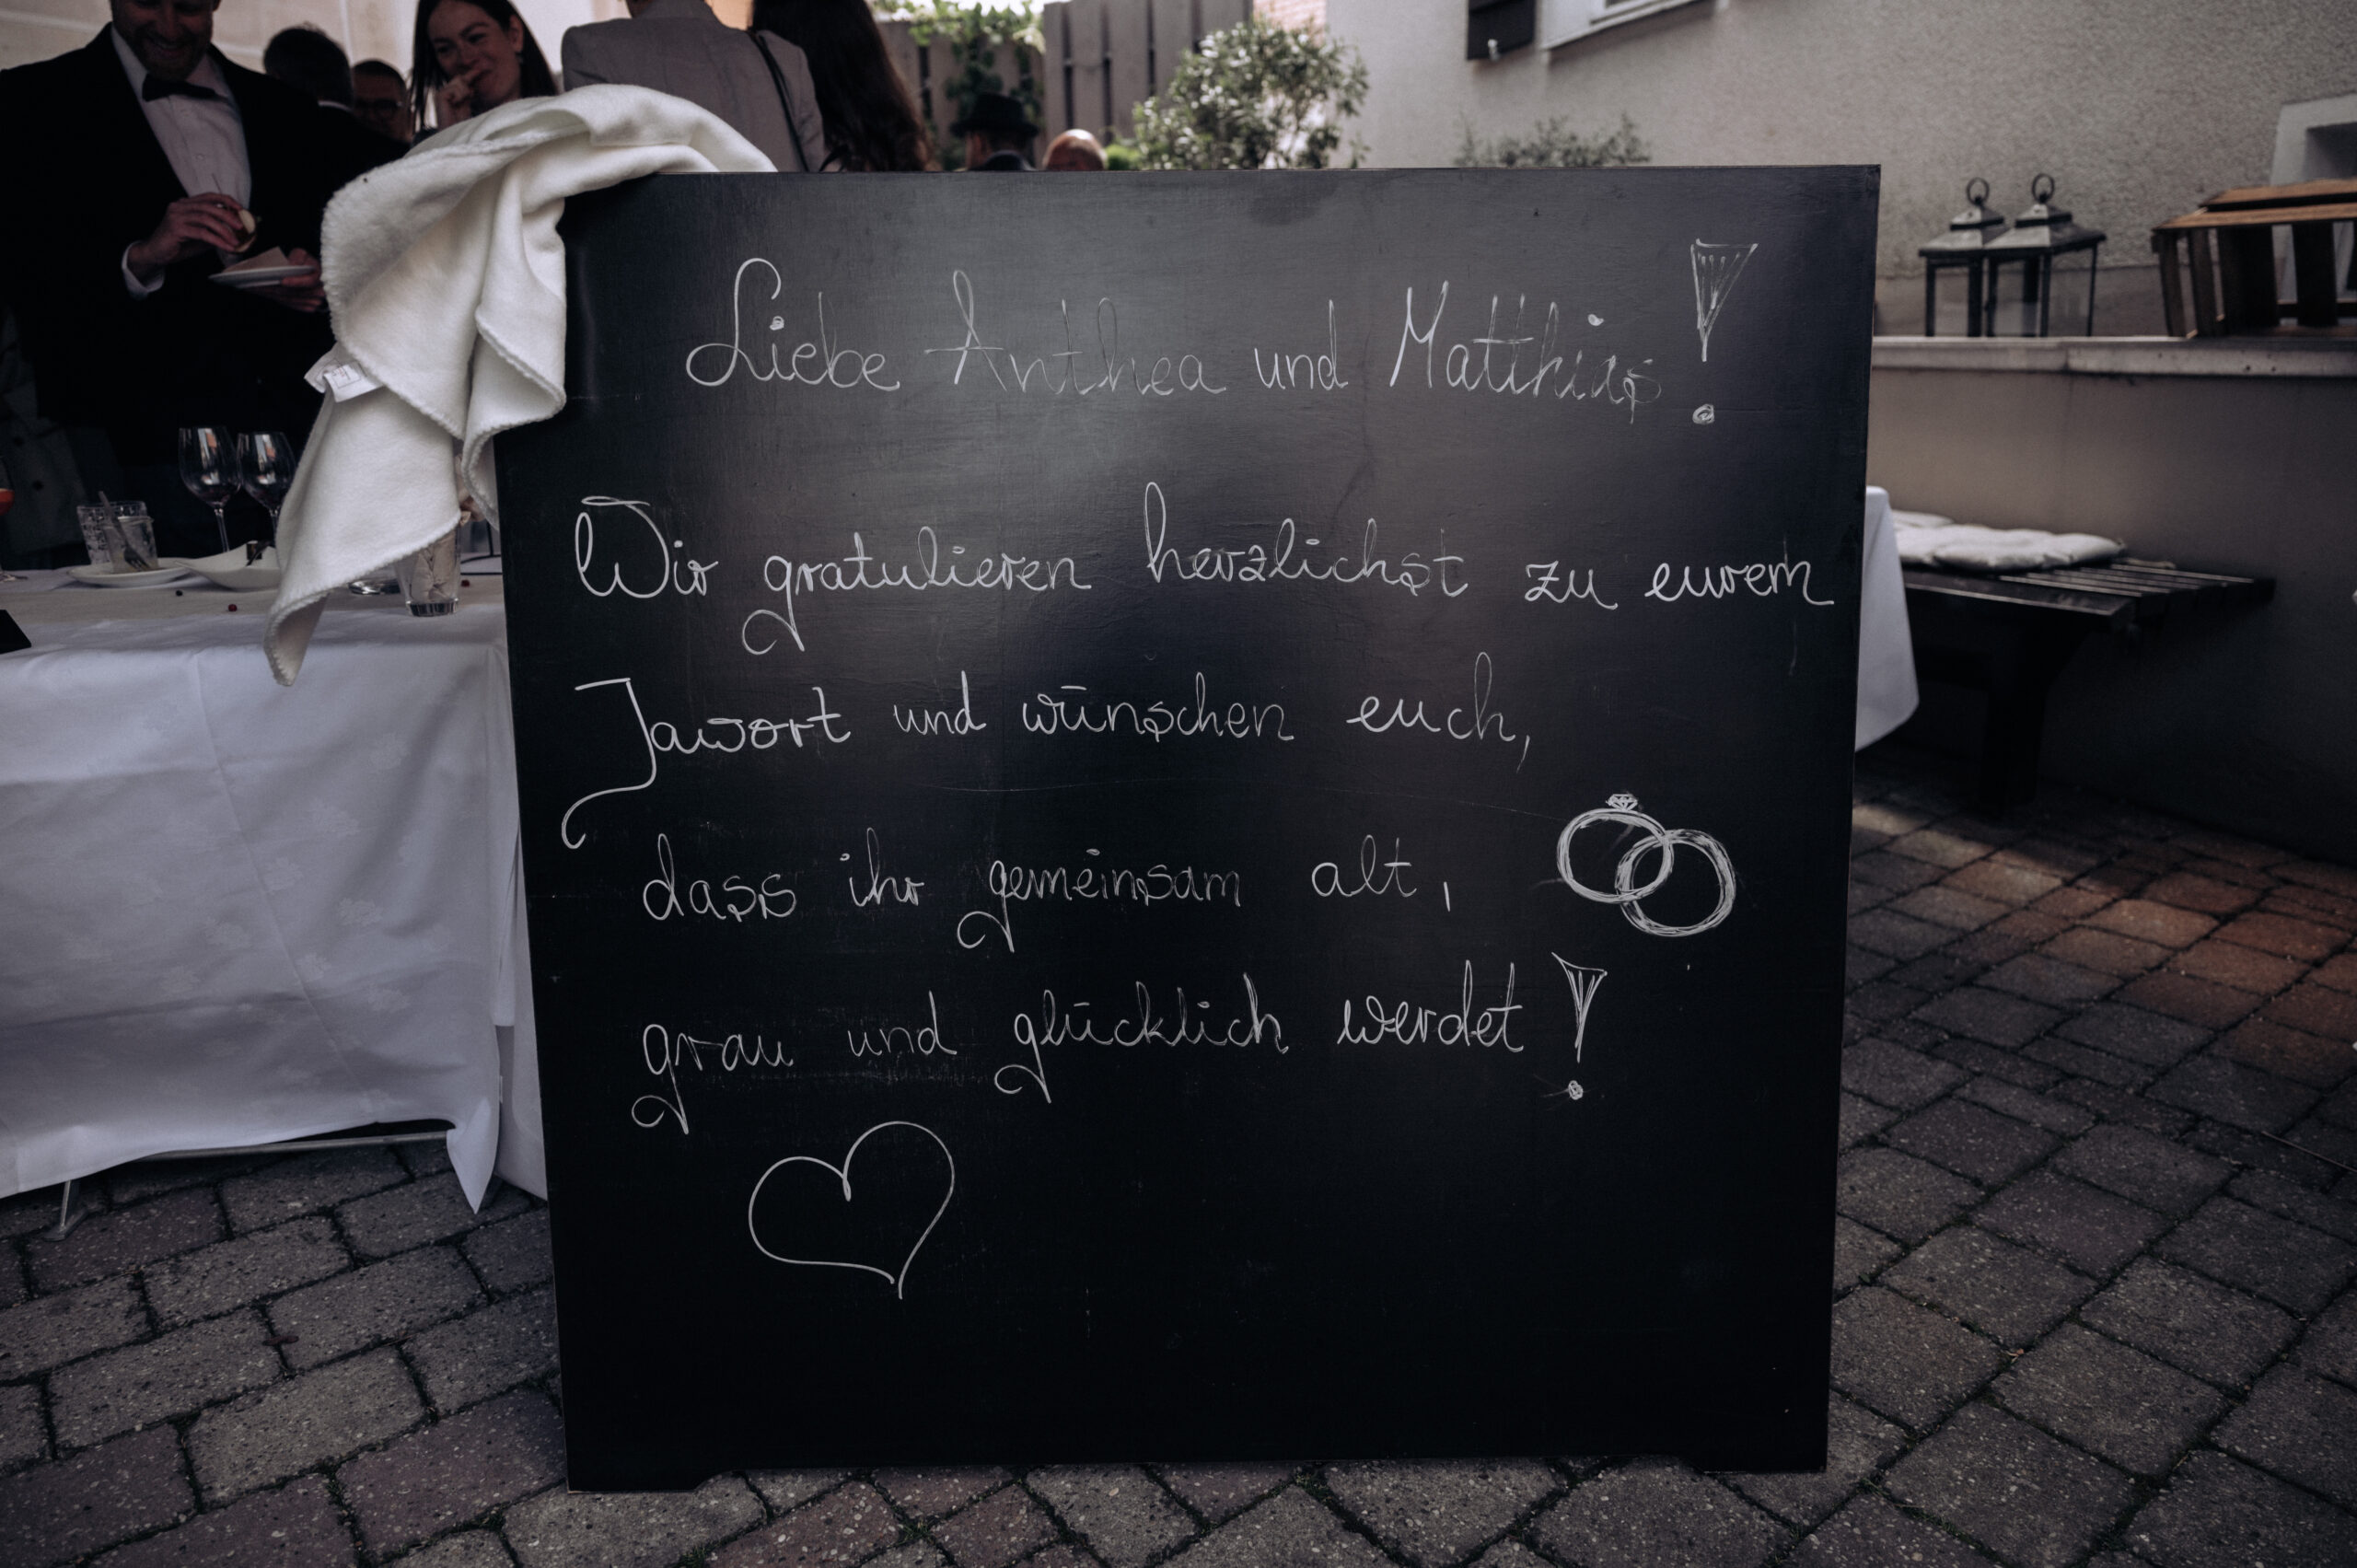 Liebe Anthea und Matthias!
Wir gratulieren herzlichst zu eurem
Jawort und wünschen euch,
dass ihr gemeinsam alt,
grau und glücklich werdet!